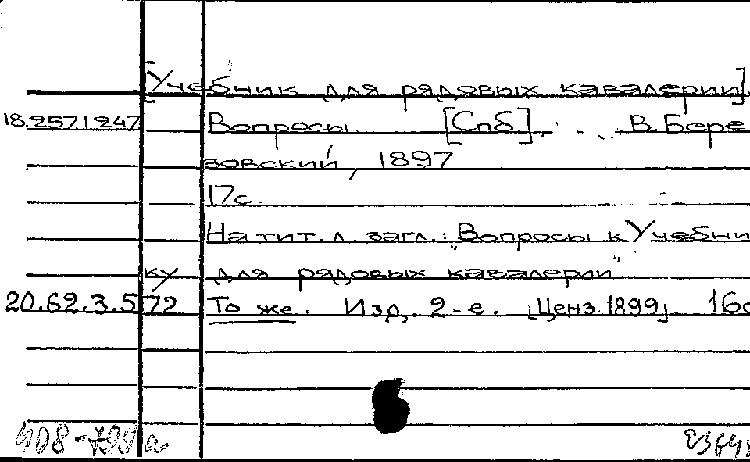 [Учебник для рядовых кавалерии]
18.257.1.247 Вопросы. [Спб], В. Бере
зовский, 1897
17с.
На тит. л. загл.: "Вопросы к Учебни
ку для рядовых кавалерии"
20.62.3.572 То же. Изд. 2-е. [Ценз. 1899]. 16с